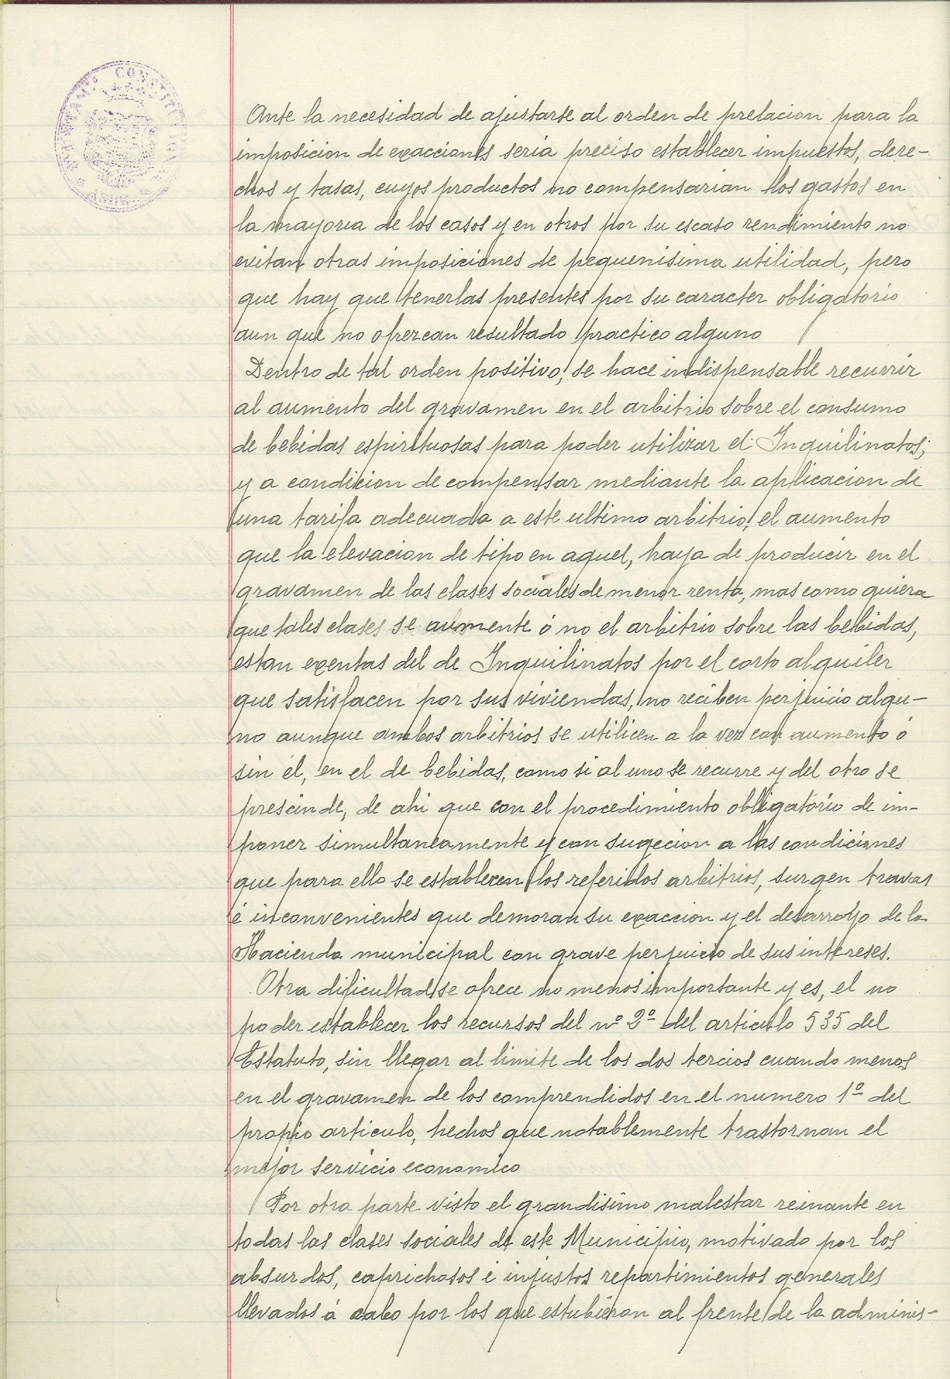 Ante la necesidad de ajustarse al orden de prelacion para la
imposicion de exacciones seria preciso establecer impuestos, dere-
chos y tasas, cuyos productos no compensarian los gastos en
la mayoria de los casos y en otros por su escaso rendimiento no
evitan otras imposiciones de pequenisima utilidad, pero
que hay que tenerlas presentes por su caracter obligatorio
aun que no ofrezcan resultado practico alguno
Dentro de tal orden positivo, se hace indispensable recurrir
al aumento del gravamen en el arbitrio sobre el consumo
de bebidas espirituosas para poder utilizar el Inquilinatos;
y a condicion de compensar mediante la aplicacion de
una tarifa adecuada a este ultimo arbitrio, el aumento
que la elevacion de tipo en aquel, haya de producir en el
gravamen de las clases sociales de menor renta, mas como quiera
que tales clases se aumente ó no el arbitrio sobre las bebidas,
estan exentas del de Inquilinatos por el corto alquiler
que satisfacen por sus viviendas, no reciben perjuicio algu-
no aunque ambos arbitrios se utilicen a la vez con aumento ó
sin él, en el de bebidas, como si al uno se recurre y del otro se
prescinde, de ahi que con el procedimiento obligatorio de im-
poner simultaneamente y con sugecion a las condiciones
que para ello se establecen los referidos arbitrios, surgen travas
é inconvenientes que demoran su exaccion y el desarroyo de la
Hacienda municipal con grave perjuicio de sus intereses.
Otra dificultad se ofrece no menos importante y es, el no
poder establecer los recursos del nº 2º del articulo 535 del
Estatuto, sin llegar al limite de los dos tercios cuando menos
en el gravamen de los comprendidos en el numero 1º del
propio articulo, hechos que notablemente trastornan el
mejor servicio economico
Por otra parte visto el grandisimo malestar reinante en
todas las clases sociales de este Municipio, motivado por los
absurdos, caprichosos é injustos repartimientos generales
llevados á cabo por los que estubieran al frente de la adminis-